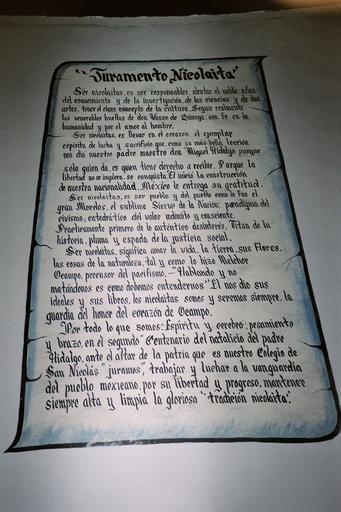 "Juramento Nicolaita"
Ser nicolaitas, es ser responsables, alentar el noble afan
del conocimiento y de la investigación de las ciencias y de las
artes, tener el claro concepto de la cultura. Seguir realmente
las venerables huellas de don Vasco de Quiroga, con fe en la
humanidad y por el amor al hombre.
Ser nicolaitas, es llevar en el corazón el ejemplar
espíritu de lucha y sacrificio que, como su más bella lección
nos dio nuestro padre maestro don Miguel Hidalgo porque
sólo quien da, es quien tiene derecho a recibir. Porque la
libertad no se implora, se conquista. El inició la construcción
de nuestra nacionalidad. México le entrega su gratitud.
Ser nicolaitas, es ser pueblo y del pueblo como lo fue el
gran Morelos, el sublime Siervo de la Nación: paradigma del
civismo, catedrático del valor indomito y consciente.
Practicamente primero de lo auténtico desinterés, Titán de la
historia, pluma y espada de la justicia social.
Ser nicolaitas, significa amar la vida, la tierra, sus flores,
las cosas de la naturaleza, tal y como lo hizo Melchor
Ocampo, precursor del pacifismo. — "Hablando y no
matándonos es como debemos entendernos" El nos dio sus
ideales y sus libros, los nicolaitas somos y seremos siempre, la
guardia del honor del corazón de Ocampo.
Por todo lo que somos: Espíritu y cerebro, pesamiento
y brazo, en el segundo Centenario del natalicio del padre
Hidalgo, ante el altar de la patria que es nuestro Colegio de
San Nicolás "juramos", trabajar y luchar a la vanguardia
del pueblo mexicano, por su libertad y progreso, mantener
siempre alta y limpia la gloriosa "tradición nicolaita."